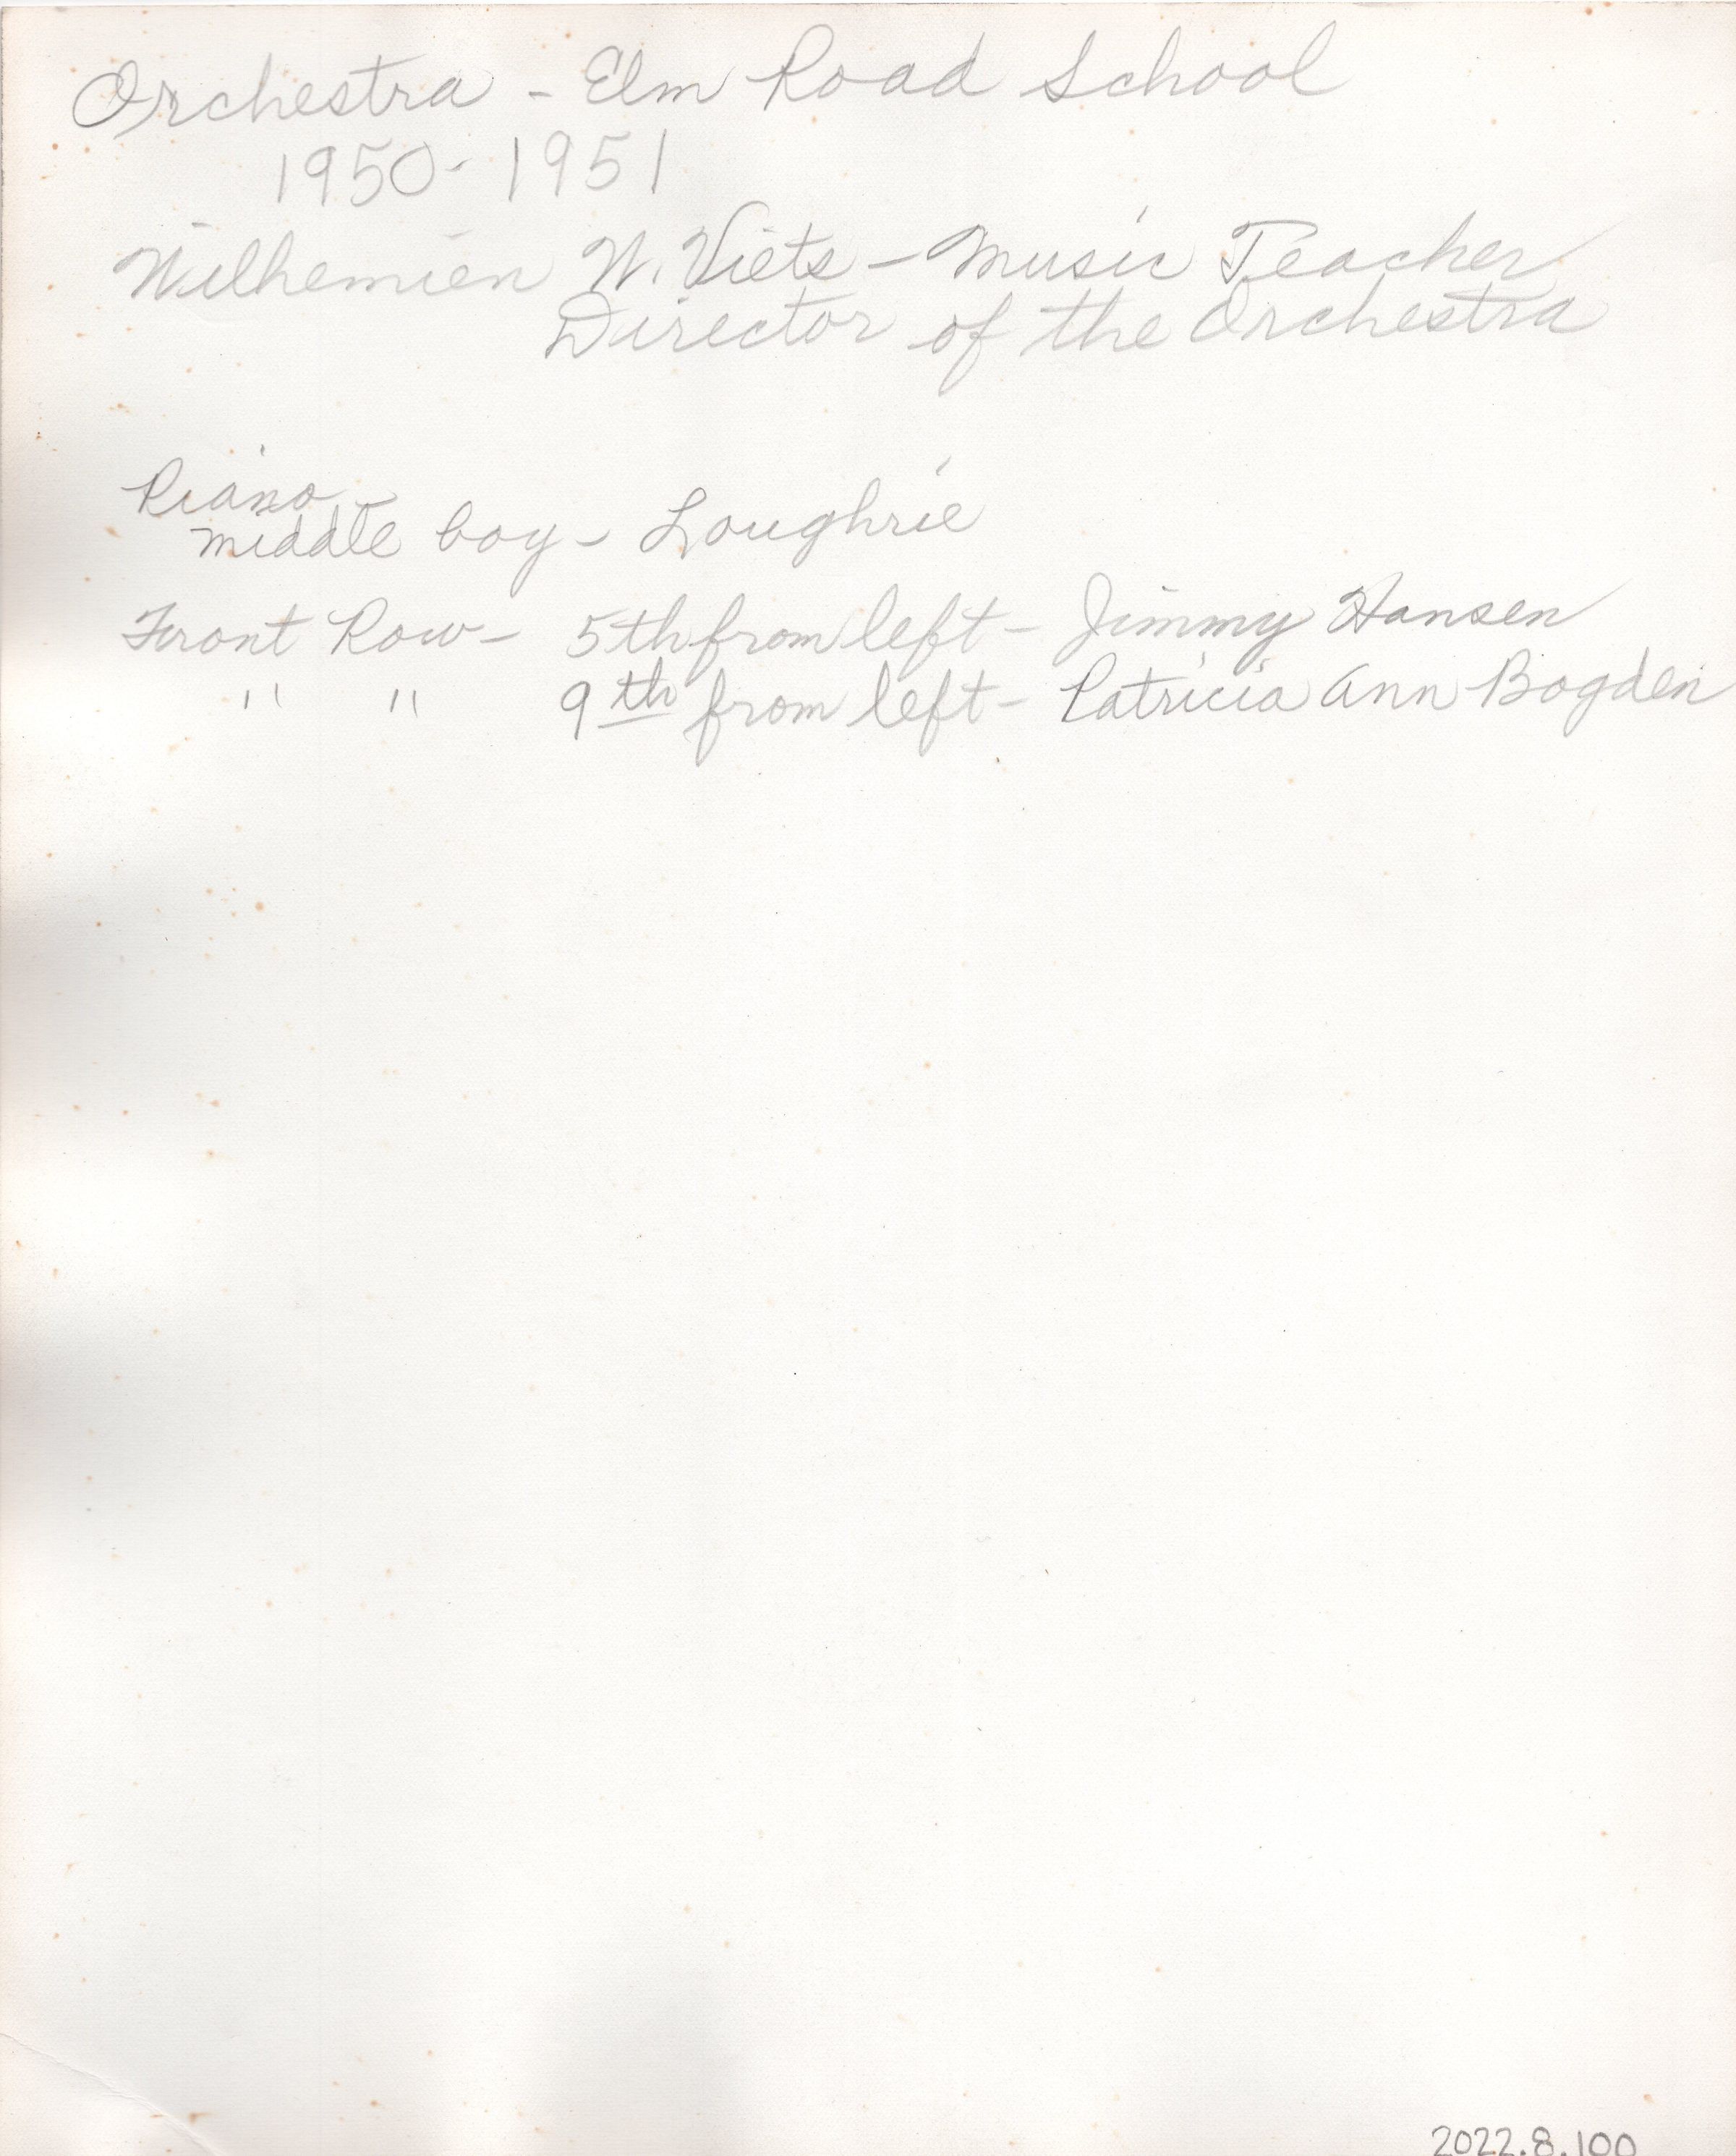 Orchestra - Elm Road School
1950-1951
Wilhemien W. Viets - Music Teacher
Director of the Orchestra
Piano -
middle boy - Loughrie
Front Row - 5th from left - Jimmy Hansen
" " 9th from left - Patricia Ann Bogden
2022.8.100